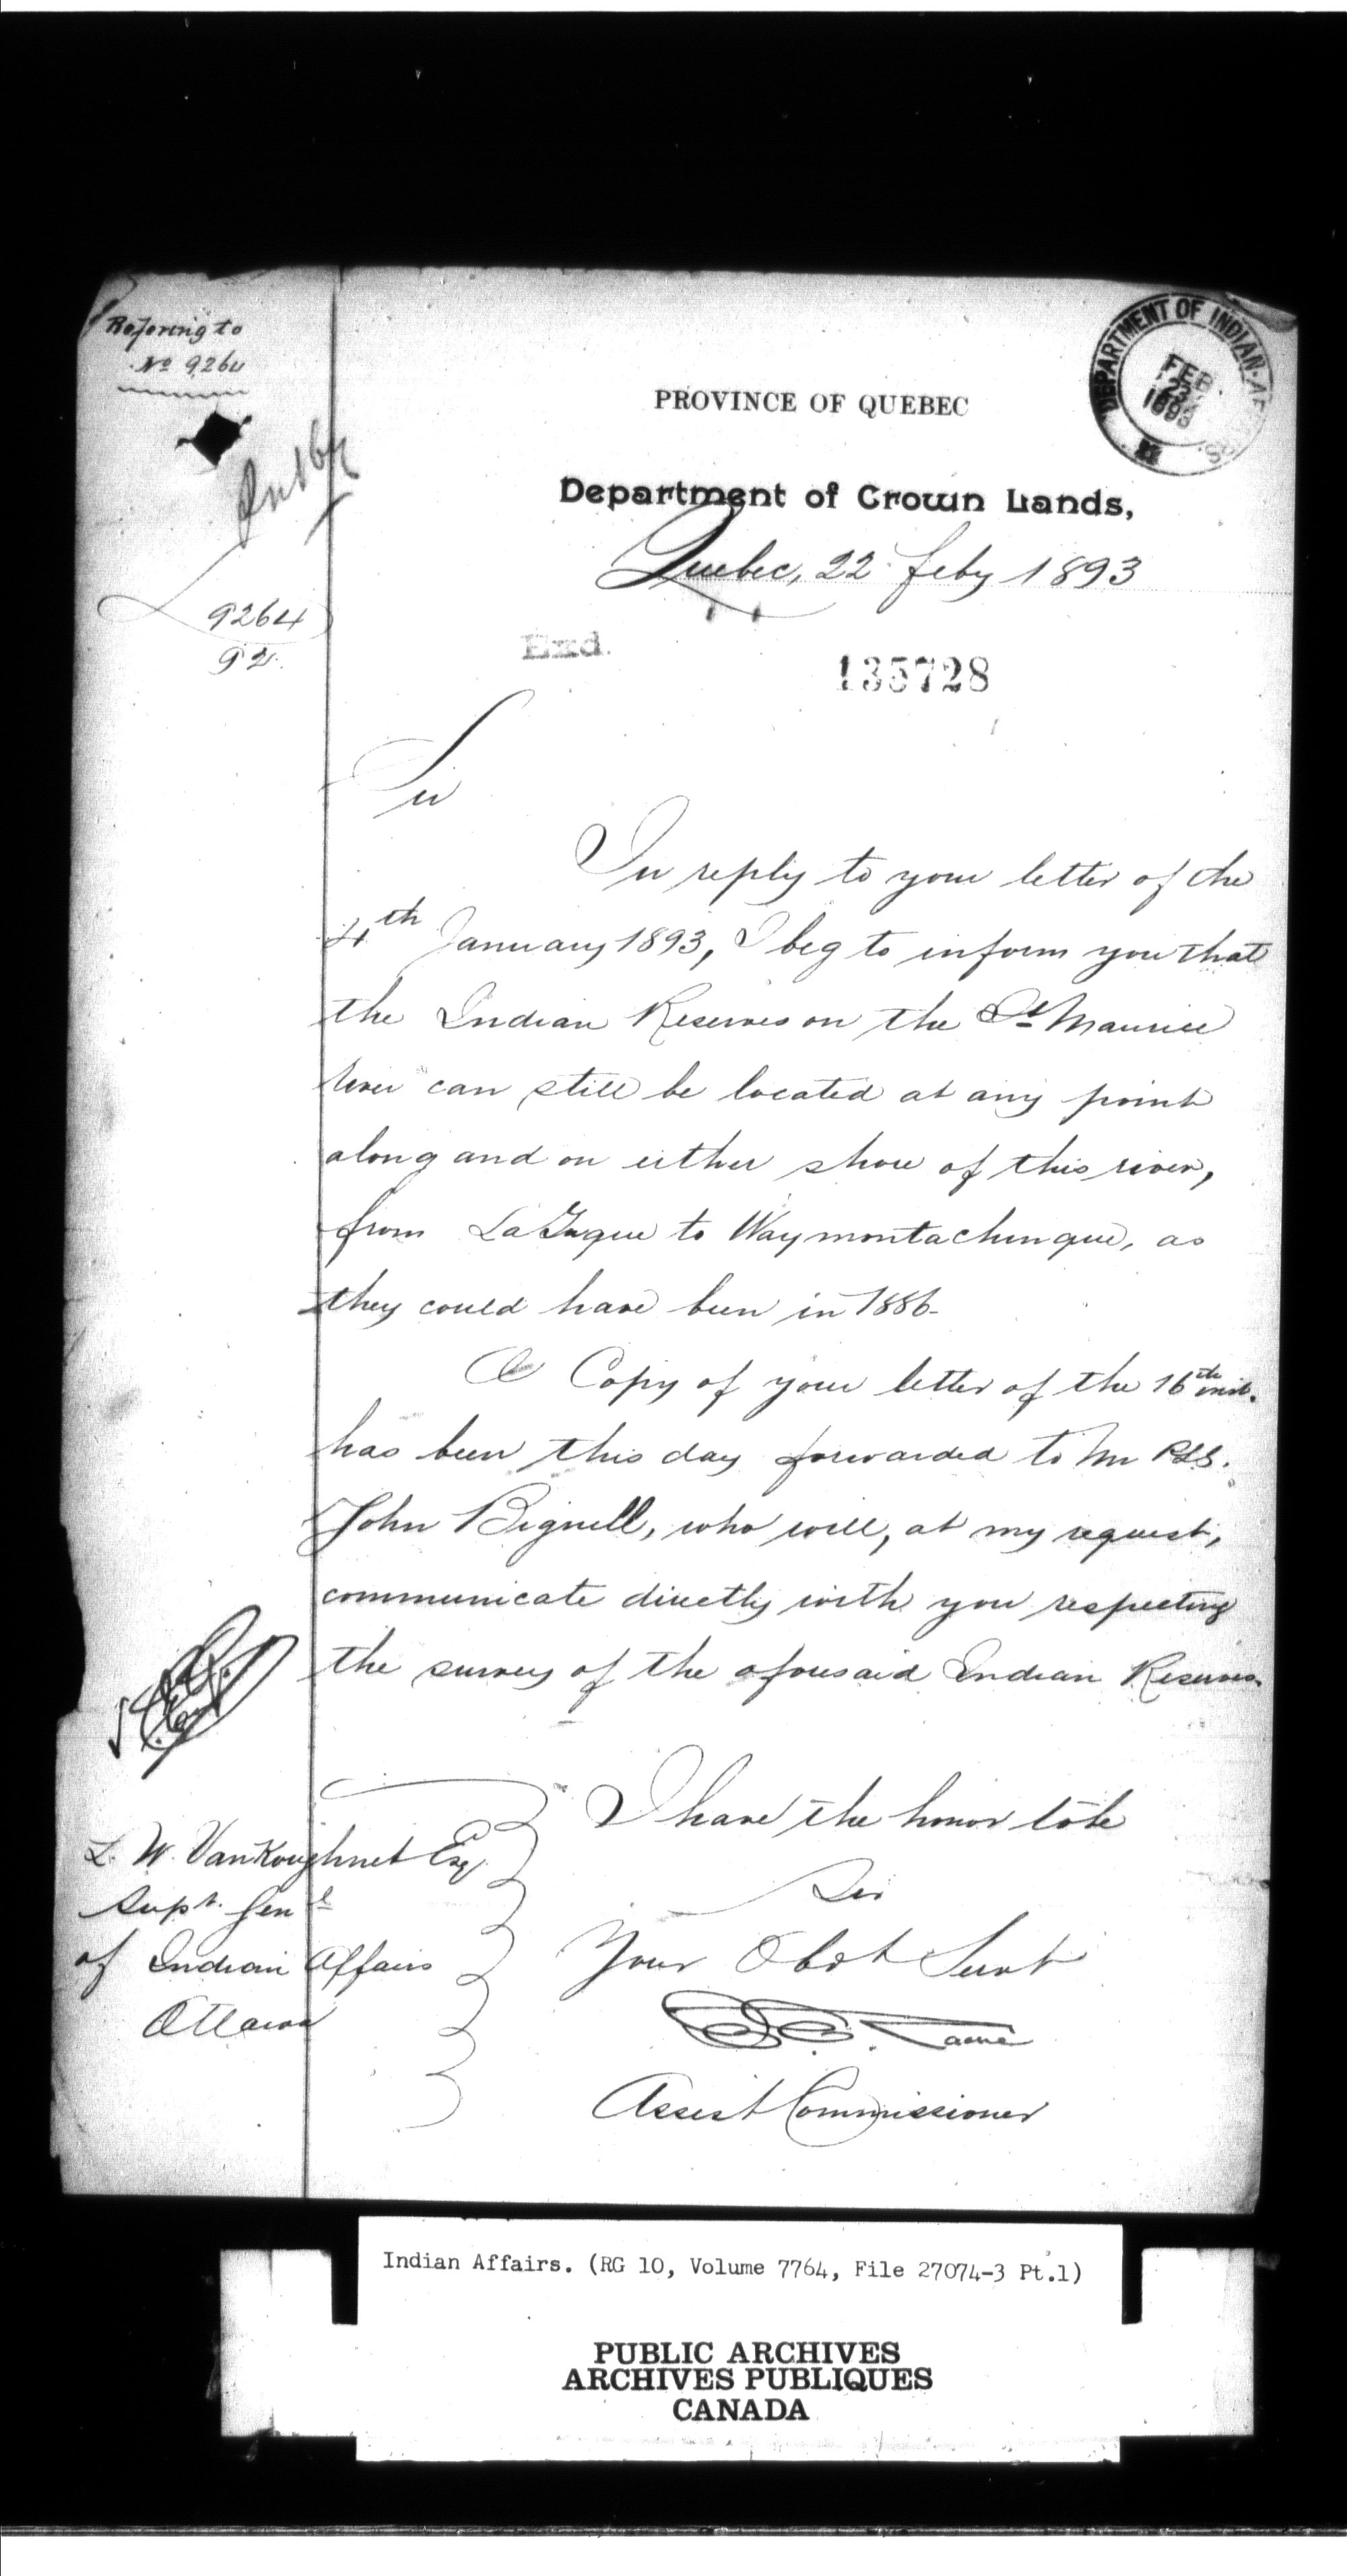 Refering to
No 9264
DEPARTMENT OF INDIAN AFFAIRS.
FEB.
23
1893
PROVINCE OF QUEBEC
Department of Crown Lands,
Quebec, 22 feby 1893
9264
92.
End.
135728
Sir
In reply to your letter of the
4th January 1893, I beg to inform you that
the Indian Reserves on the St Maurice
river can still be located at any point
along and on either shore of this river,
from LaTuque to Waymontachinque, as
they could have been in 1886-
A Copy of your letter of the 16th inst.
has been this day forwarded to Mr PLS.
John Bignell, who will, at my request,
communicate directly with you respecting
the survey of the aforesaid Indian Reserves.
I have the honor to be
Sir
Your Obdt Servt
E. E. Taché
Assist Commissioner
L. W. VanKoughnet Esq.
Supt. Genl
of Indian Affairs
Ottawa
Indian Affairs. (RG 10, Volume 7764, File 27074-3 Pt.1)
PUBLIC ARCHIVES
ARCHIVES PUBLIQUES
CANADA